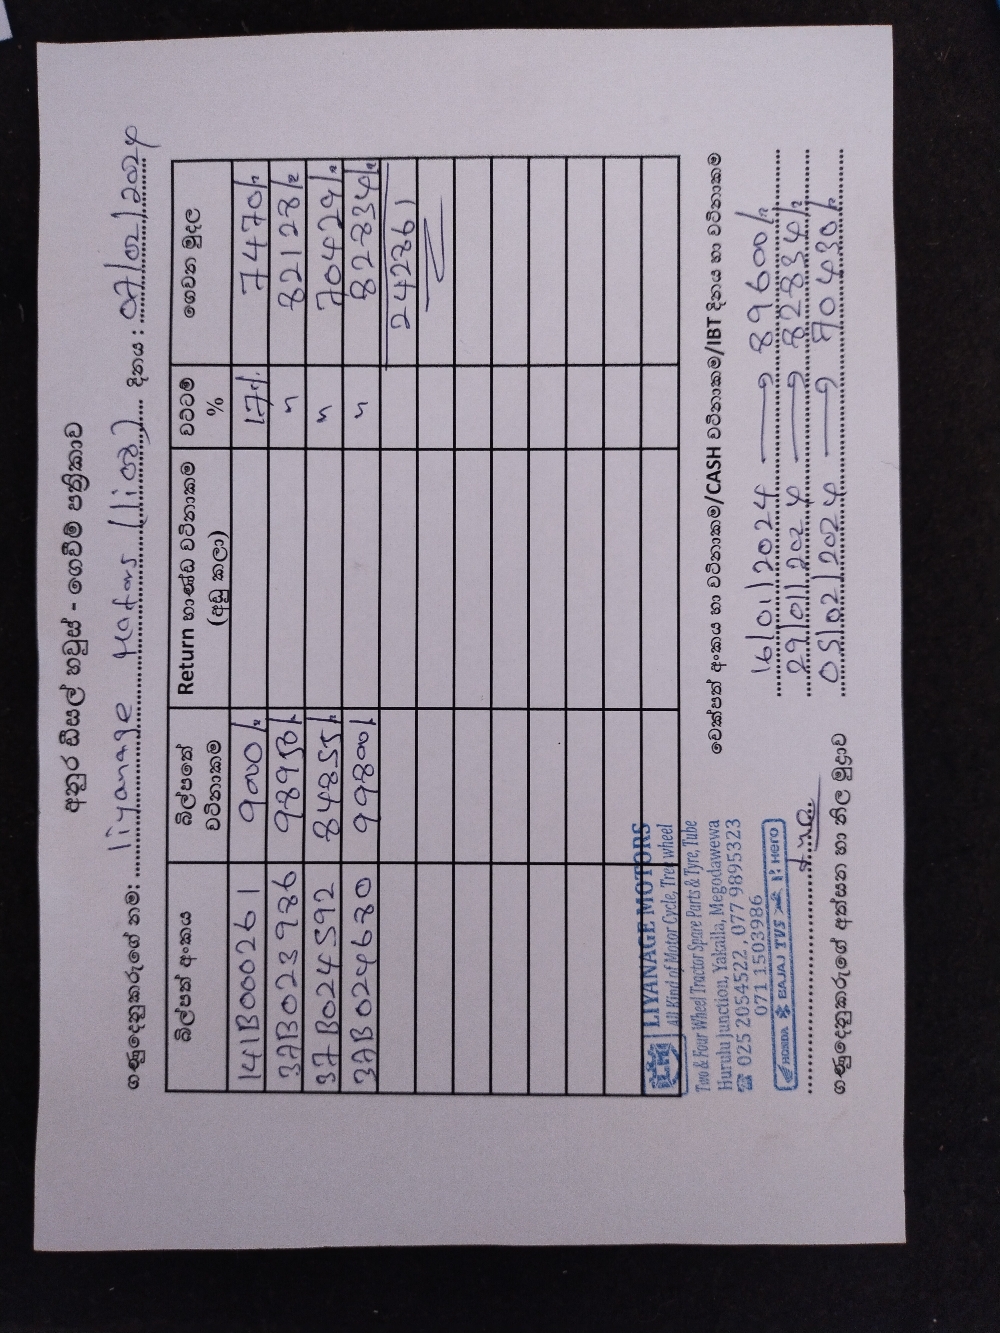 අනුර ඩීසල් හවුස් - ගෙවීම් පත්‍රිකාව
ගණුදෙනුකරුගේ නම: liyanage Motors දිනය: 07/02/2024
බිල්පත් අංකය බිල්පතේ වටිනාකම Return භාණ්ඩ වටිනාකම (අඩු කලා) වට්ටම % ගෙවන මුදල
141B000261 9000/= 17% 7470/=
37B023986 98950/= " 82128/=
37B024592 84855/= " 70429/=
37B024680 99800/= " 82834/=
242861
LIYANAGE MOTORS
All Kind of Motor Cycle, Tree wheel
Two & Four Wheel Tractor Spare Parts & Tyre, Tube
Hurulu Junction, Yakalla, Megodawewa
☎ 025 2054522, 077 9895323
071 1503986
HONDA BAJAJ TVS Hero
ගණුදෙනුකරුගේ අත්සන හා නිල මුද්‍රාව
චෙක්පත් අංකය හා වටිනාකම/CASH වටිනාකම/IBT දිනය හා වටිනාකම
16/01/2024 → 89600/=
29/01/2024 → 82834/=
05/02/2024 → 70430/=